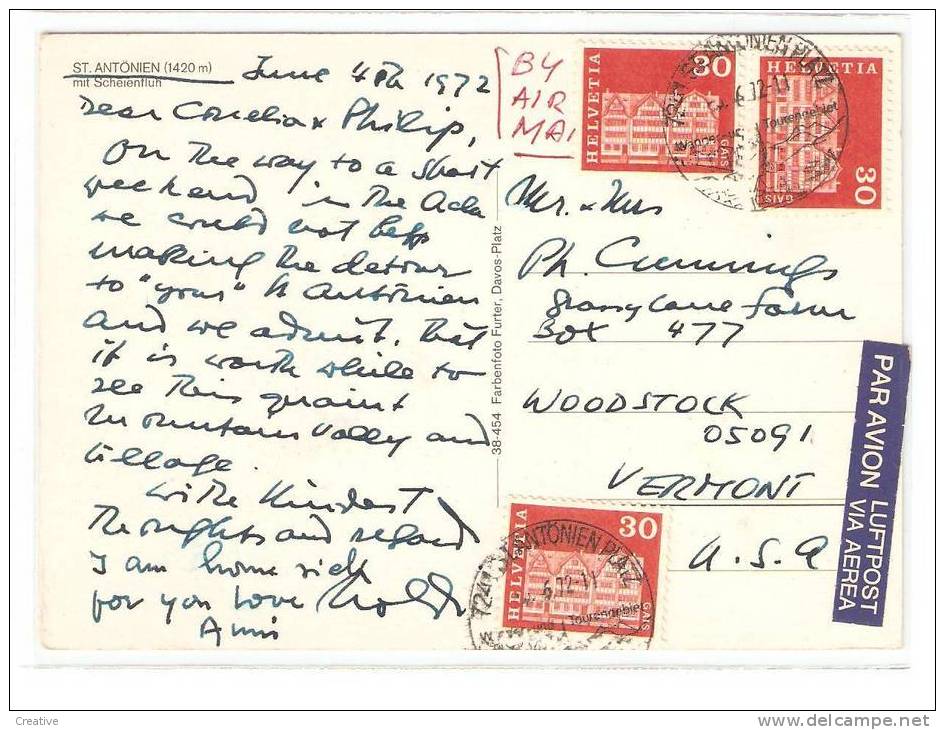 ST. ANTÖNIEN (1420 m)
mit Scheienfluh
June 4th 1972
Dear Cornelia & Philip,
On the way to a short
weekend in the
we could not help
making the detour
to "your" St Antönien
and we admit, that
it is worth while to
see this quaint
mountain valley and
village.
with kindest
thoughts and regard
I am home sick
for you love
38-454 Farbenfoto Furter, Davos-Platz
BY
AIR
MAI
HELVETIA
30
GAIS
HELVETIA
30
GAIS
7241 ST. ANTÖNIEN PLATZ
6.72-11
Tourengebiet
Mr. & Mrs
Ph. Cummings
Grassy Lane Farm
BOX 477
WOODSTOCK
05091
VERMONT
U.S.A
PAR AVION LUFTPOST
VIA AEREA
HELVETIA
30
GAIS
7241 ST. ANTÖNIEN PLATZ
6.72-11
Tourengebiet
Creative
www.delcampe.net